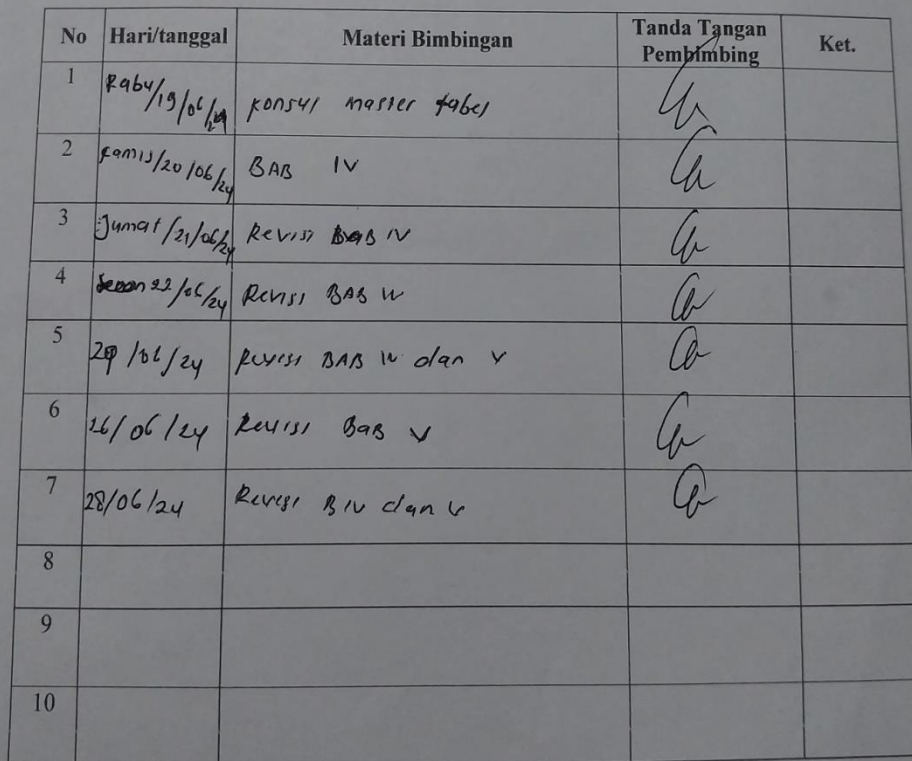 No Hari/tanggal Materi Bimbingan Tanda Tangan Pembimbing Ket.
1 Rabu/19/06/24 Konsul master tabel
2 Kamis/20/06/24 BAB IV
3 Jumat/21/06/24 Revisi BAB IV
4 22/06/24 Revisi BAB IV
5 /06/24 Revisi BAB IV dan V
6 26/06/24 Revisi BAB V
7 28/06/24 Revisi B IV dan V
8
9
10